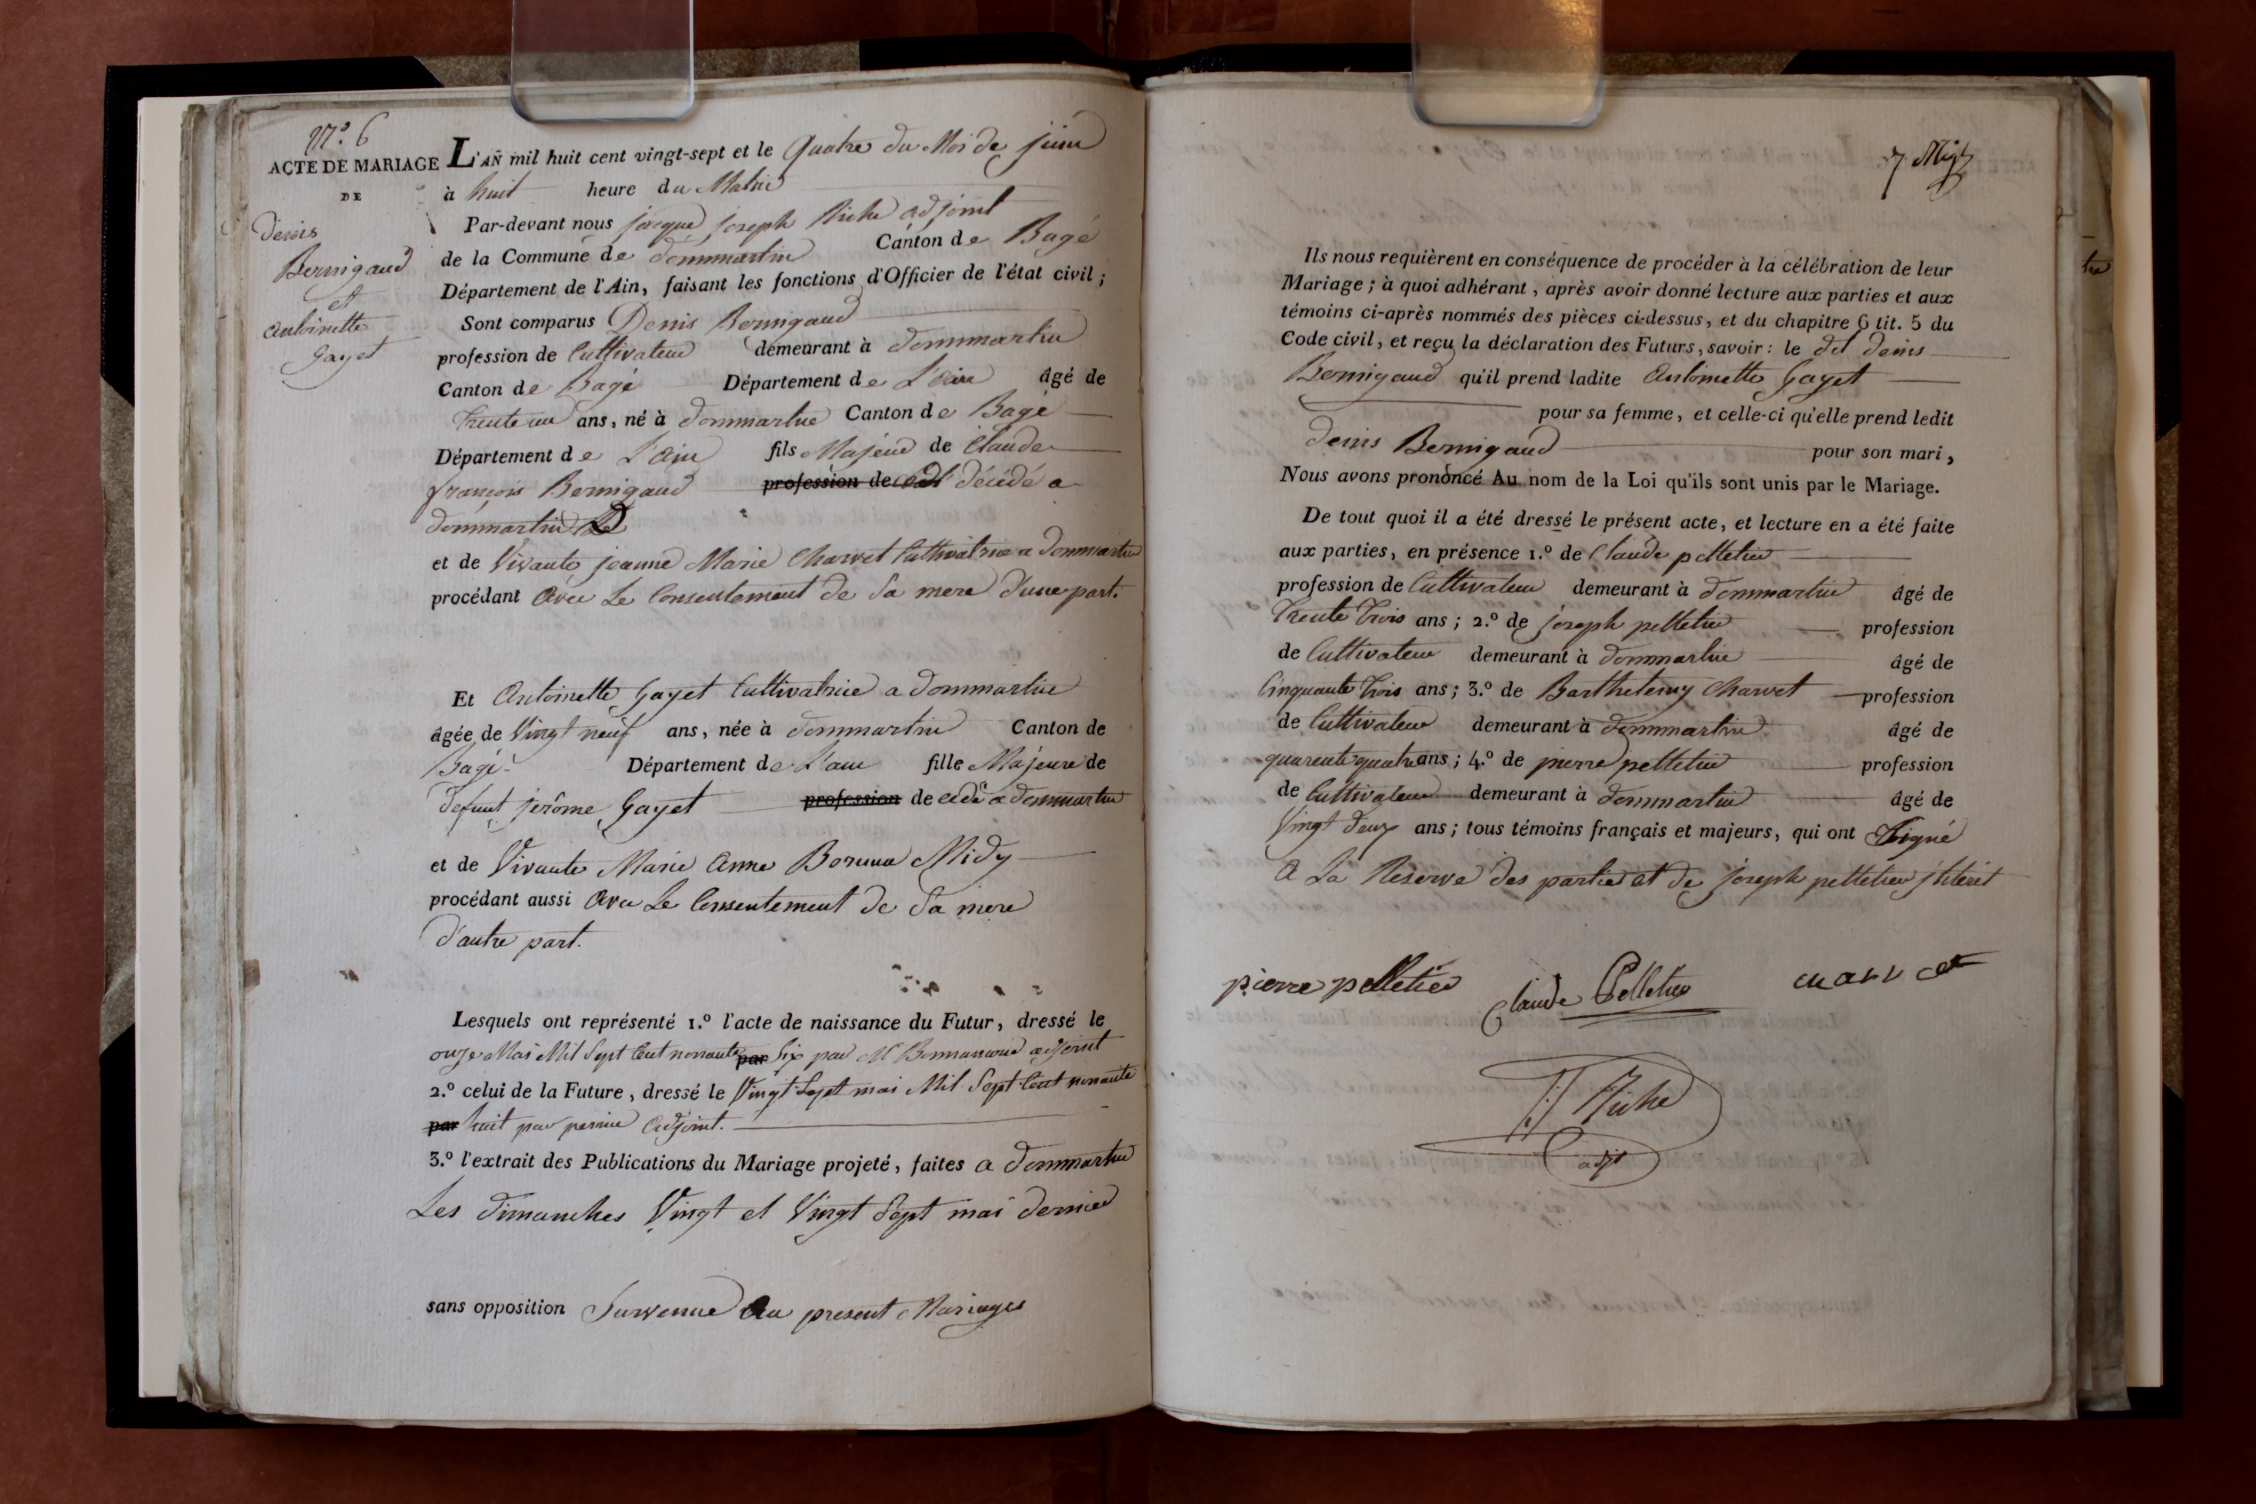 N.º 6
ACTE DE MARIAGE
DE
denis
Bernigaud
et
antoinette
gayet
L'AN mil huit cent vingt-sept et le quatre du Mois de juin
à huit heure du Matin
Par-devant nous jacque joseph Riche adjoint
de la Commune de dommartin Canton de Bagé
Département de l'Ain, faisant les fonctions d'Officier de l'état civil ;
Sont comparus Denis Bernigaud
profession de Cultivateur demeurant à dommartin
Canton de Bagé Département de L'ain âgé de
trente un ans, né à dommartin Canton de Bagé
Département de L'ain fils Majeur de Claude
françois Bernigaud profession de décédé a
dommartin
et de Vivante jeanne Marie Charvet Cultivatrice a dommartin
procédant avec Le Consentement de Sa mere d'une part.
Et antoinette gayet Cultivatrice a dommartin
âgée de Vingt neuf ans, née à dommartin Canton de
Bagé Département de L'ain fille Majeure de
defunt jerôme gayet profession de cédé a dommartin
et de Vivante Marie anne Midy
procédant aussi avec Le Consentement de Sa mere
d'autre part.
Lesquels ont représenté 1.º l'acte de naissance du Futur, dressé le
onze Mai Mil Sept Cent nonante par Six par Mr adjoint
2.º celui de la Future, dressé le Vingt Sept mai Mil Sept Cent nonante
par huit par adjoint.
3.º l'extrait des Publications du Mariage projeté, faites a dommartin
Les dimanches Vingt et Vingt Sept mai dernier
sans opposition Survenue au present Mariages
Ils nous requièrent en conséquence de procéder à la célébration de leur
Mariage ; à quoi adhérant, après avoir donné lecture aux parties et aux
témoins ci-après nommés des pièces ci-dessus, et du chapitre 6 tit. 5 du
Code civil, et reçu la déclaration des Futurs, savoir : le dit denis
Bernigaud qu'il prend ladite antoinette gayet
pour sa femme, et celle-ci qu'elle prend ledit
denis Bernigaud pour son mari,
Nous avons prononcé Au nom de la Loi qu'ils sont unis par le Mariage.
De tout quoi il a été dressé le présent acte, et lecture en a été faite
aux parties, en présence 1.º de Claude pelletier
profession de Cultivateur demeurant à dommartin âgé de
trente trois ans ; 2.º de joseph pelletier profession
de Cultivateur demeurant à dommartin âgé de
Cinquante trois ans ; 3.º de Barthelemy Charvet profession
de Cultivateur demeurant à dommartin âgé de
quarente quatre ans ; 4.º de pierre pelletier profession
de Cultivateur demeurant à dommartin âgé de
Vingt deux ans ; tous témoins français et majeurs, qui ont Signé
a La Reserve des parties et de joseph pelletier
pierre pelletier
Claude Pelletier
charvet
Riche
adjt